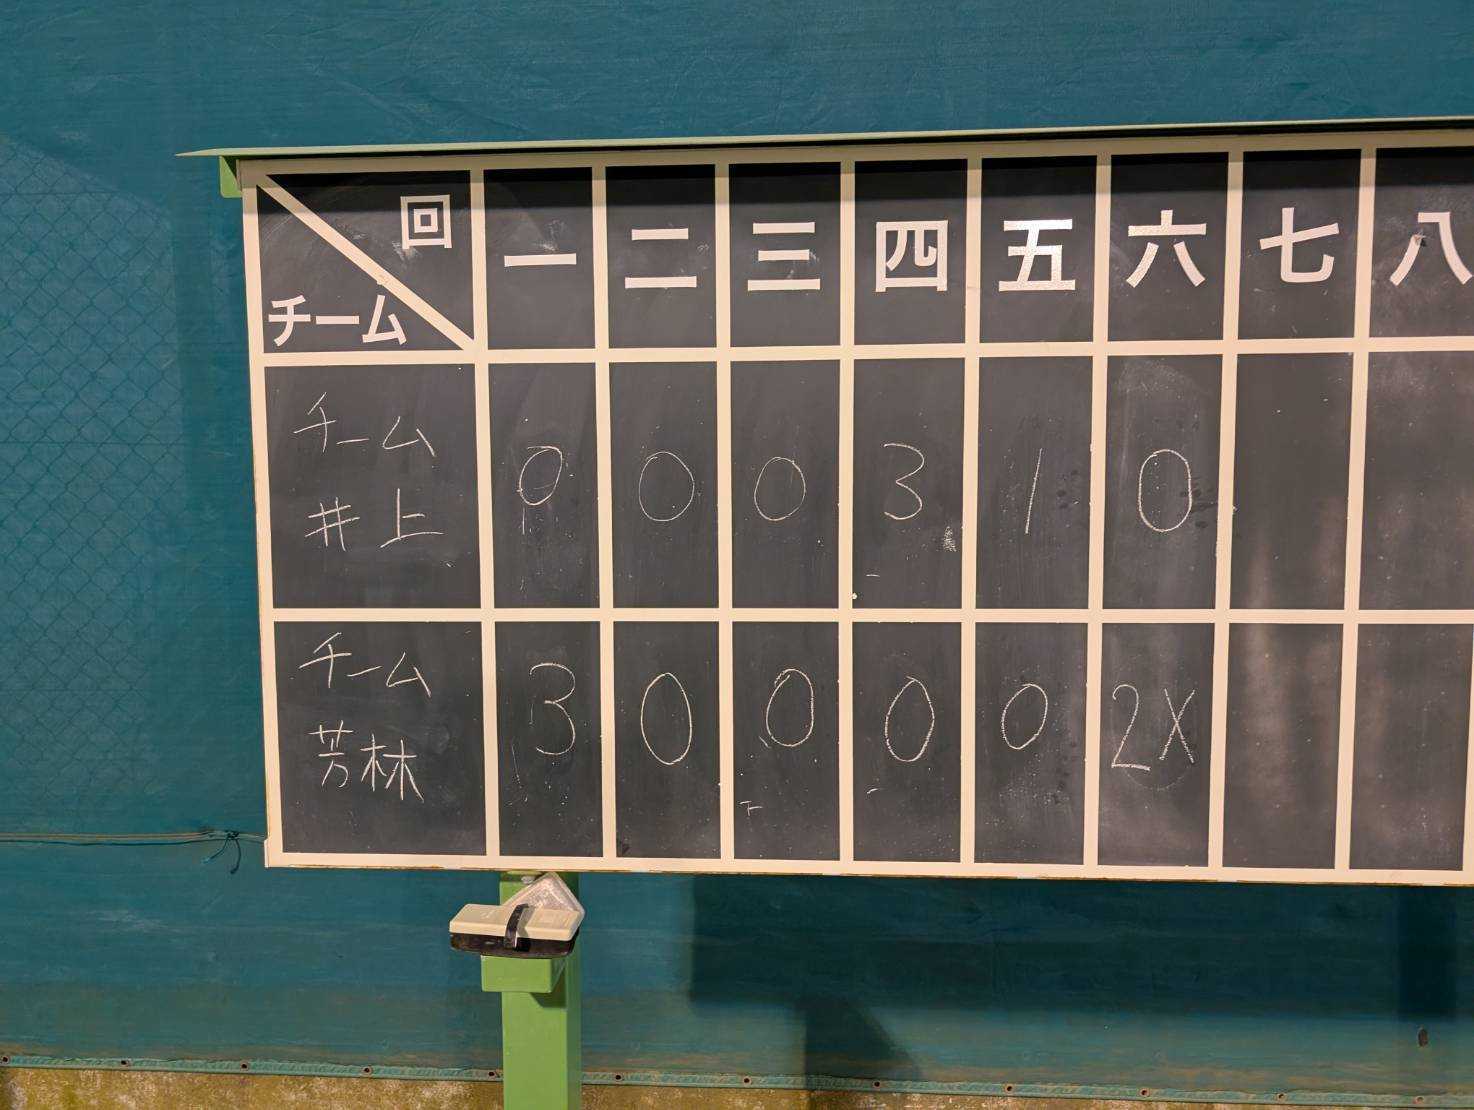 回 一 二 三 四 五 六 七 八
チーム
チーム
井上 0 0 0 3 1 0
チーム
芳林 3 0 0 0 0 2X